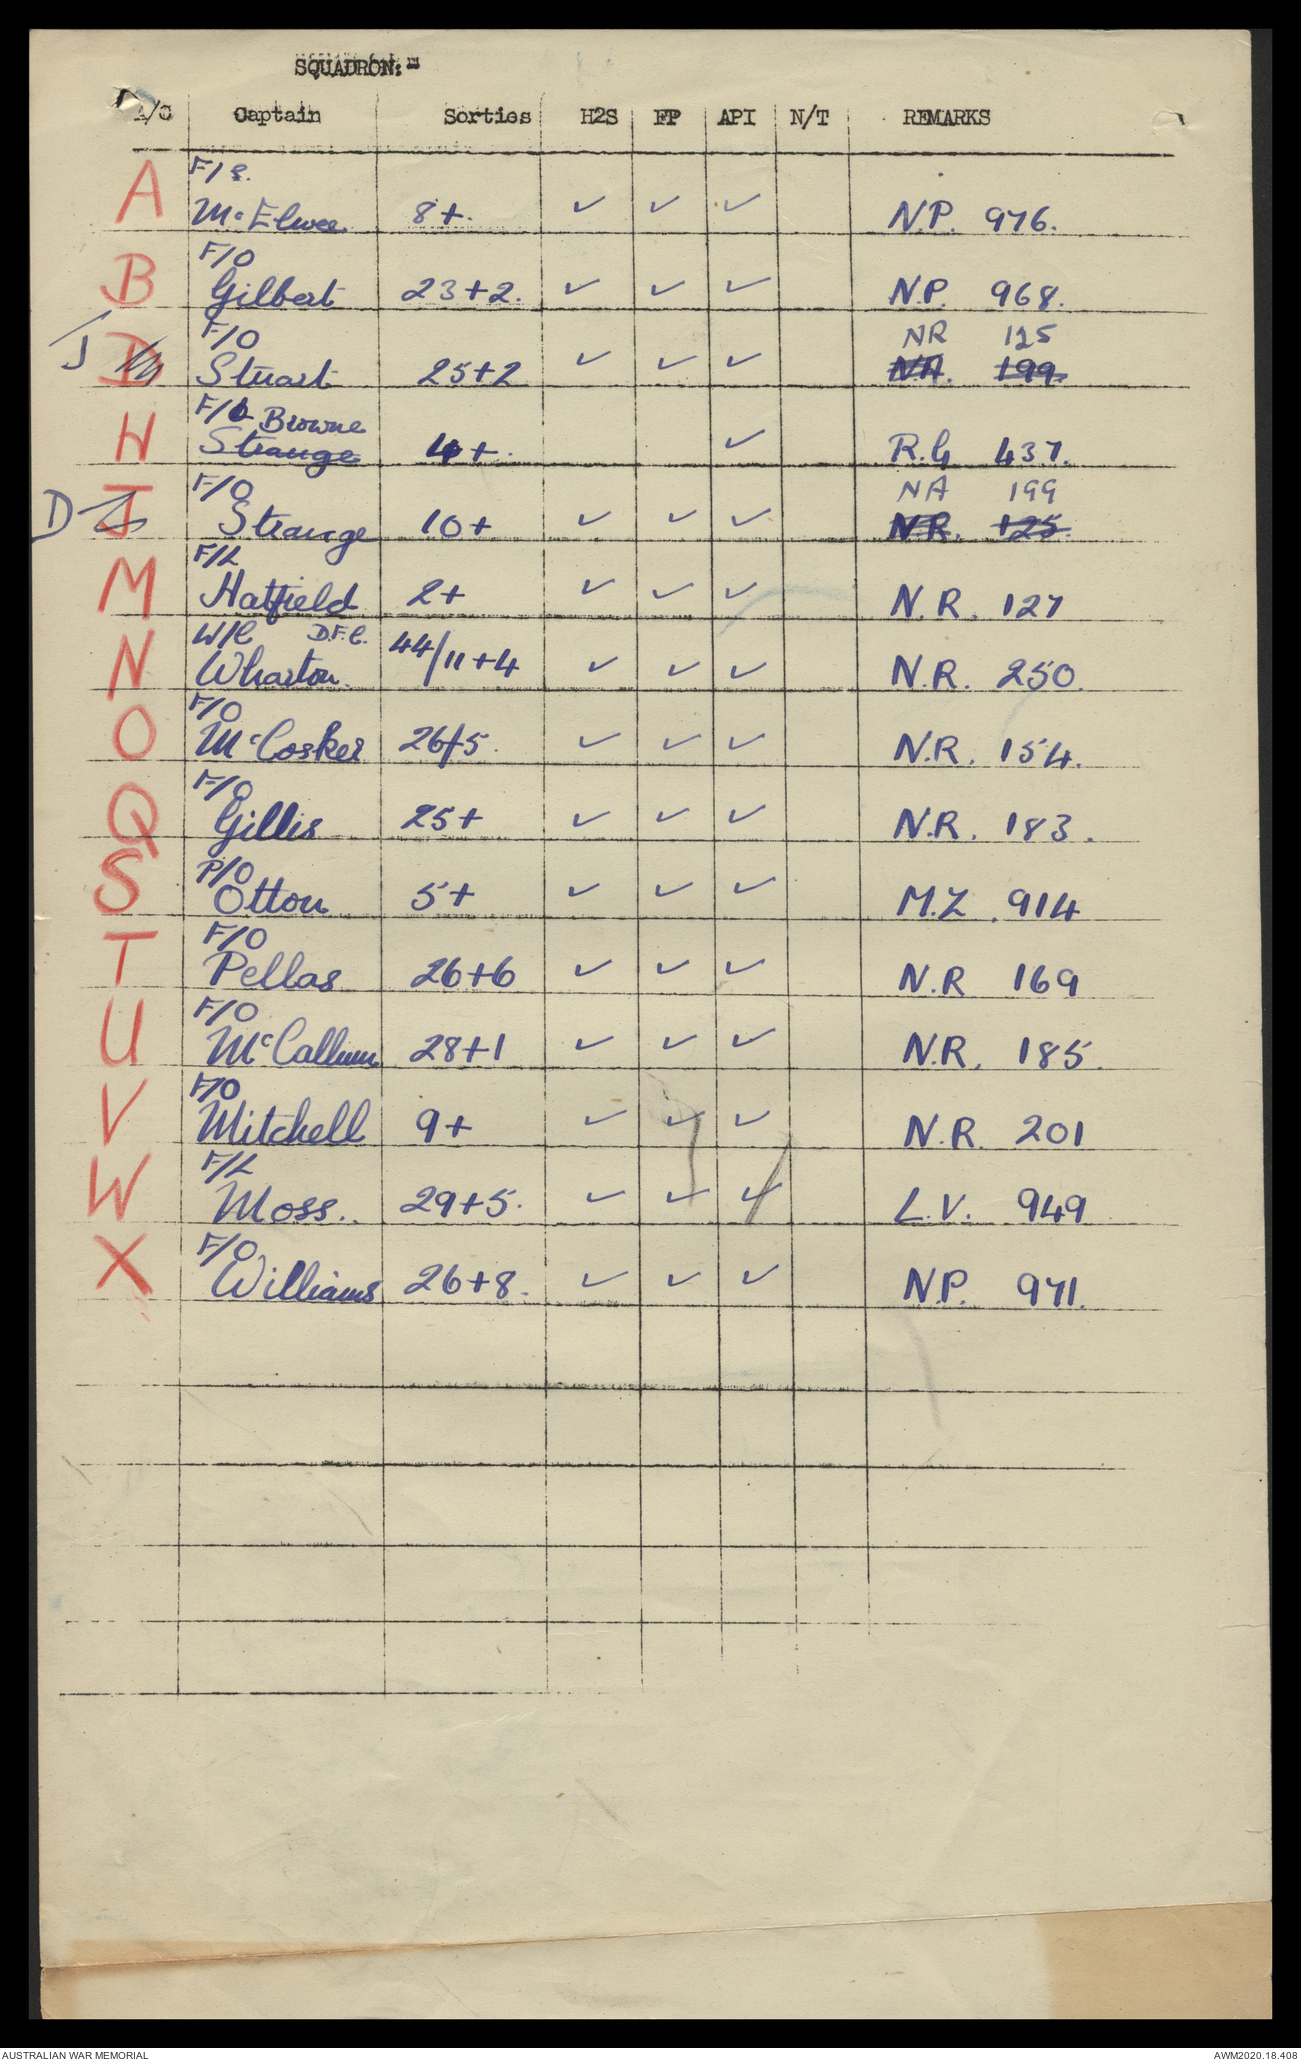 SQUADRON:-
A/C Captain Sorties H2S FP API N/T REMARKS
F/S.
A McElwee 8+. ✓ ✓ ✓ N.P. 976.
F/O
B Gilbert 23+2. ✓ ✓ ✓ N.P. 968.
F/O NR 125
J D Stuart 25+2 ✓ ✓ ✓ N.A. 199.
F/O Browne
H Strange 4+. ✓ R.G 437.
F/O NA 199
D J Strange 10+ ✓ ✓ ✓ N.R. 125.
F/L
M Hatfield 2+ ✓ ✓ ✓ N.R. 127
W/C D.F.C.
N Wharton. 44/11+4 ✓ ✓ ✓ N.R. 250.
F/O
O McCosker 26/5. ✓ ✓ ✓ N.R. 154.
F/O
Q Gillis 25+ ✓ ✓ ✓ N.R. 183.
P/O
S Otton 5+ ✓ ✓ ✓ M.Z. 914
F/O
T Pellas 26+6 ✓ ✓ ✓ N.R 169
F/O
U McCallum 28+1 ✓ ✓ ✓ N.R. 185.
F/O
V Mitchell 9+ ✓ ✓ ✓ N.R. 201
F/L
W Moss.. 29+5. ✓ ✓ ✓ L.V. 949
F/O
X Williams 26+8. ✓ ✓ ✓ N.P. 971.
AUSTRALIAN WAR MEMORIAL AWM2020.18.408